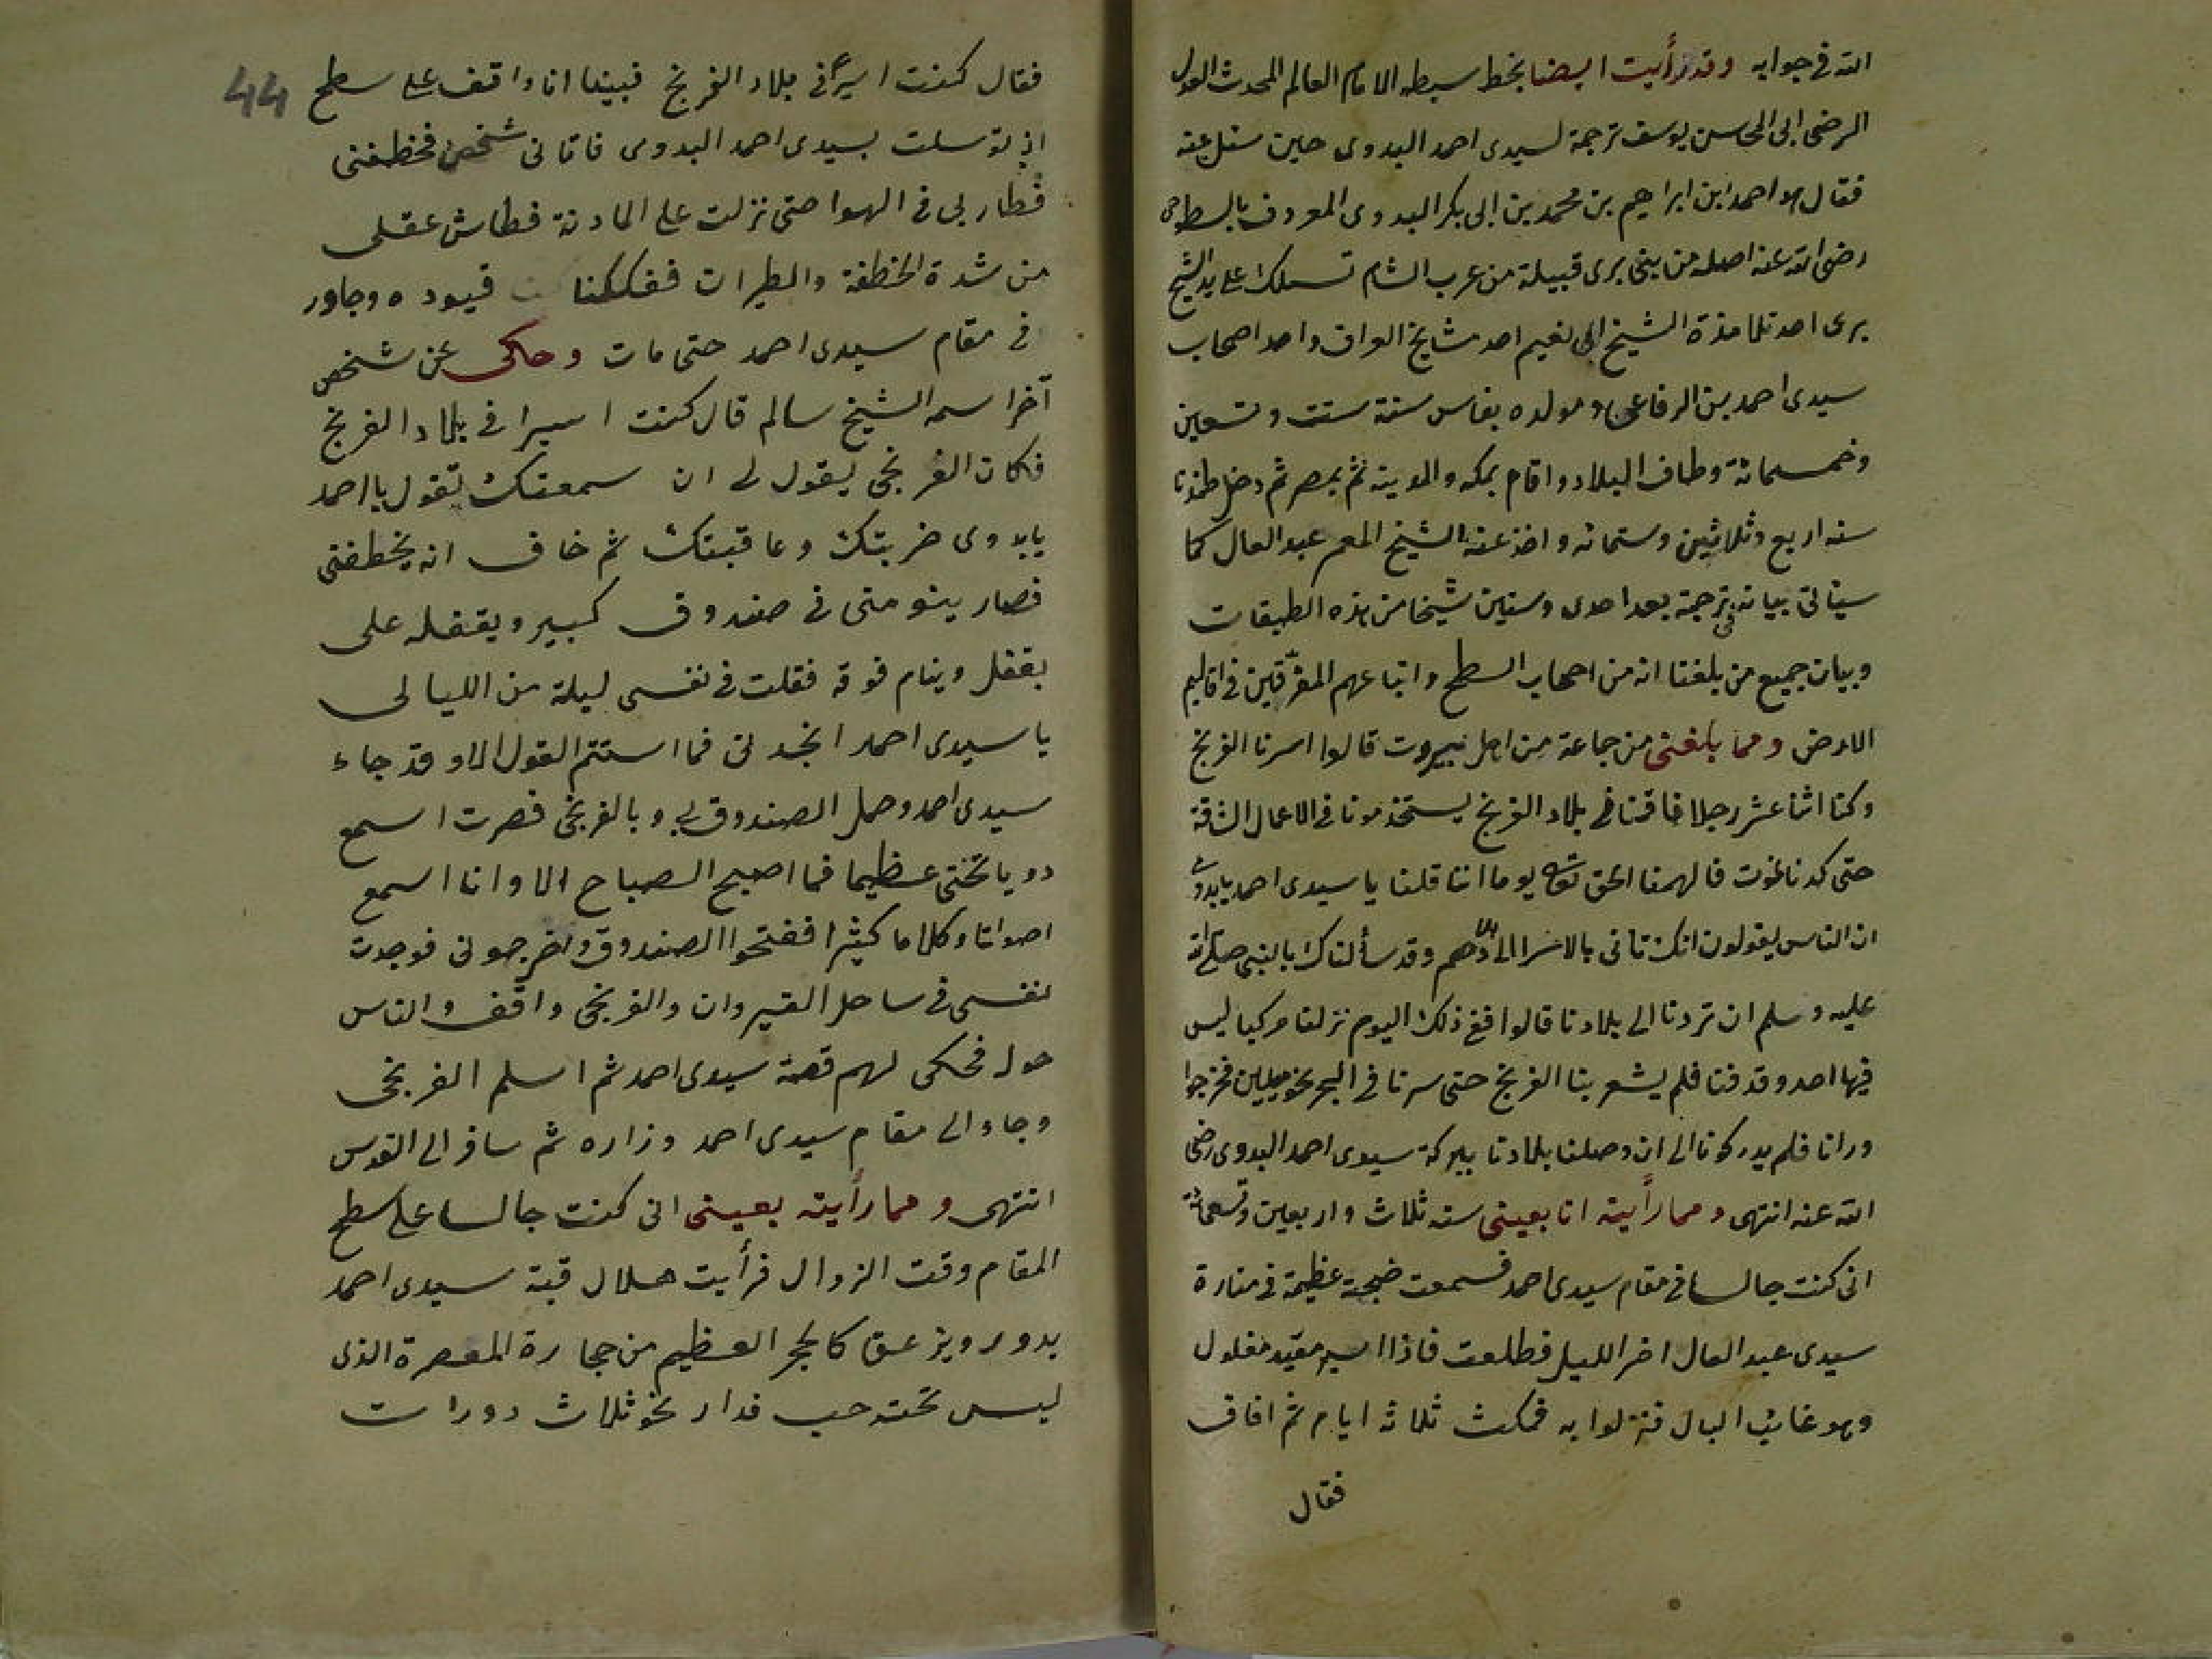 الله في جوابه وقد رأيت ايضا بخط سبطه الامام العالم المحدث
الرضى ابى المحاسن يوسف ترجمة لسيدى احمد البدوى حين سئل عنه
فقال هو احمد ابن ابراهيم بن محمد بن ابى بكر البدوى المعروف بالسطوحى
رضى الله عنه اصله من بنى برى قبيلة من عرب الشام تسلك على يد الشيخ
برى احد تلامذة الشيخ ابى نعيم احد مشايخ العراق واحد اصحاب
سيدى احمد بن الرفاعى ومولده بفاس سنة ست وتسعين
وخمسمائة وطاف البلاد واقام بمكه والمدينه ثم بمصر ثم دخل طندتا
سنه اربع وثلاثين وستمائه واخذ عنه الشيخ المعمر عبد العال كما
سيأتى بيانه فى ترجمة بعد احدى وستين شيخا من هذه الطبقات
وبيان جميع من بلغنا انه من اصحاب السطح واتباعهم المفرقين فى اقاليم
الارض ومما بلغنى من جماعة من اهل بيروت قالوا اسرنا الفرنج
وكنا اثنا عشر رجلا فاقمنا فى بلاد الفرنج يستخدمونا فى الاعمال الشاقة
حتى كدنا نموت فالهمنا الحق تعالى يوما اننا قلنا يا سيدى احمد يا بدوى
ان الناس يقولون انك تاتى بالاسرا الى بلادهم وقد سألناك بالنبى صلى الله
عليه وسلم ان تردنا الى بلادنا قالوا ففى ذلك اليوم نزلنا مركبا ليس
فيها احد وقدفنا فلم يشعر بنا الفرنج حتى سرنا فى البحر نحو ميلين فخرجوا
ورانا فلم يدركونا الى ان وصلنا بلادنا ببركة سيدى احمد البدوى رضى
الله عنه انتهى ومما رأيته انا بعينى سنه ثلاث واربعين وتسعمائة
انى كنت جالسا فى مقام سيدى احمد فسمعت ضجة عظيمة فى منارة
سيدى عبد العال اخر الليل فطلعت فاذا اسير مقيد مغلول
وهو غائب البال فنزلوا به فمكث ثلاثه ايام ثم افاق
فقال
44
فقال كنت اسيرا فى بلاد الفرنج فبينما انا واقف على سطح
اذ توسلت بسيدى احمد البدوى فاتانى شخص فخطفنى
فطار بى فى الهوا حتى نزلت على المادنة فطاش عقلى
من شدة الخطفة والطيران ففككنا قيوده وجاور
فى مقام سيدى احمد حتى مات وحكى عن شخص
آخر اسمه الشيخ سالم قال كنت اسيرا فى بلاد الفرنج
فكان الفرنجى يقول لى ان سمعتك تقول يا احمد
يا بدوى ضربتك وعاقبتك ثم خاف انه يخطفنى
فصار ينومنى فى صندوق كبير ويقفله على
بقفل وينام فوقه فقلت فى نفسى ليلة من الليالى
يا سيدى احمد انجدنى فما استتم القول الا وقد جاء
سيدى احمد وحمل الصندوق بى وبالفرنجى فصرت اسمع
دويا تحتى عظيما فما اصبح الصباح الا وانا اسمع
اصواتا وكلاما كثيرا ففتحوا الصندوق واخرجونى فوجدت
نفسى فى ساحل القيروان والفرنجى واقف والناس
حوله فحكى لهم قصة سيدى احمد ثم اسلم الفرنجى
وجاء الى مقام سيدى احمد وزاره ثم سافر الى القدس
انتهى ومما رأيته بعينى انى كنت جالسا على سطح
المقام وقت الزوال فرأيت هلال قبة سيدى احمد
يدور ويزعق كالحجر العظيم من حجارة المعصرة الذى
ليس تحته حب فدار نحو ثلاث دورات